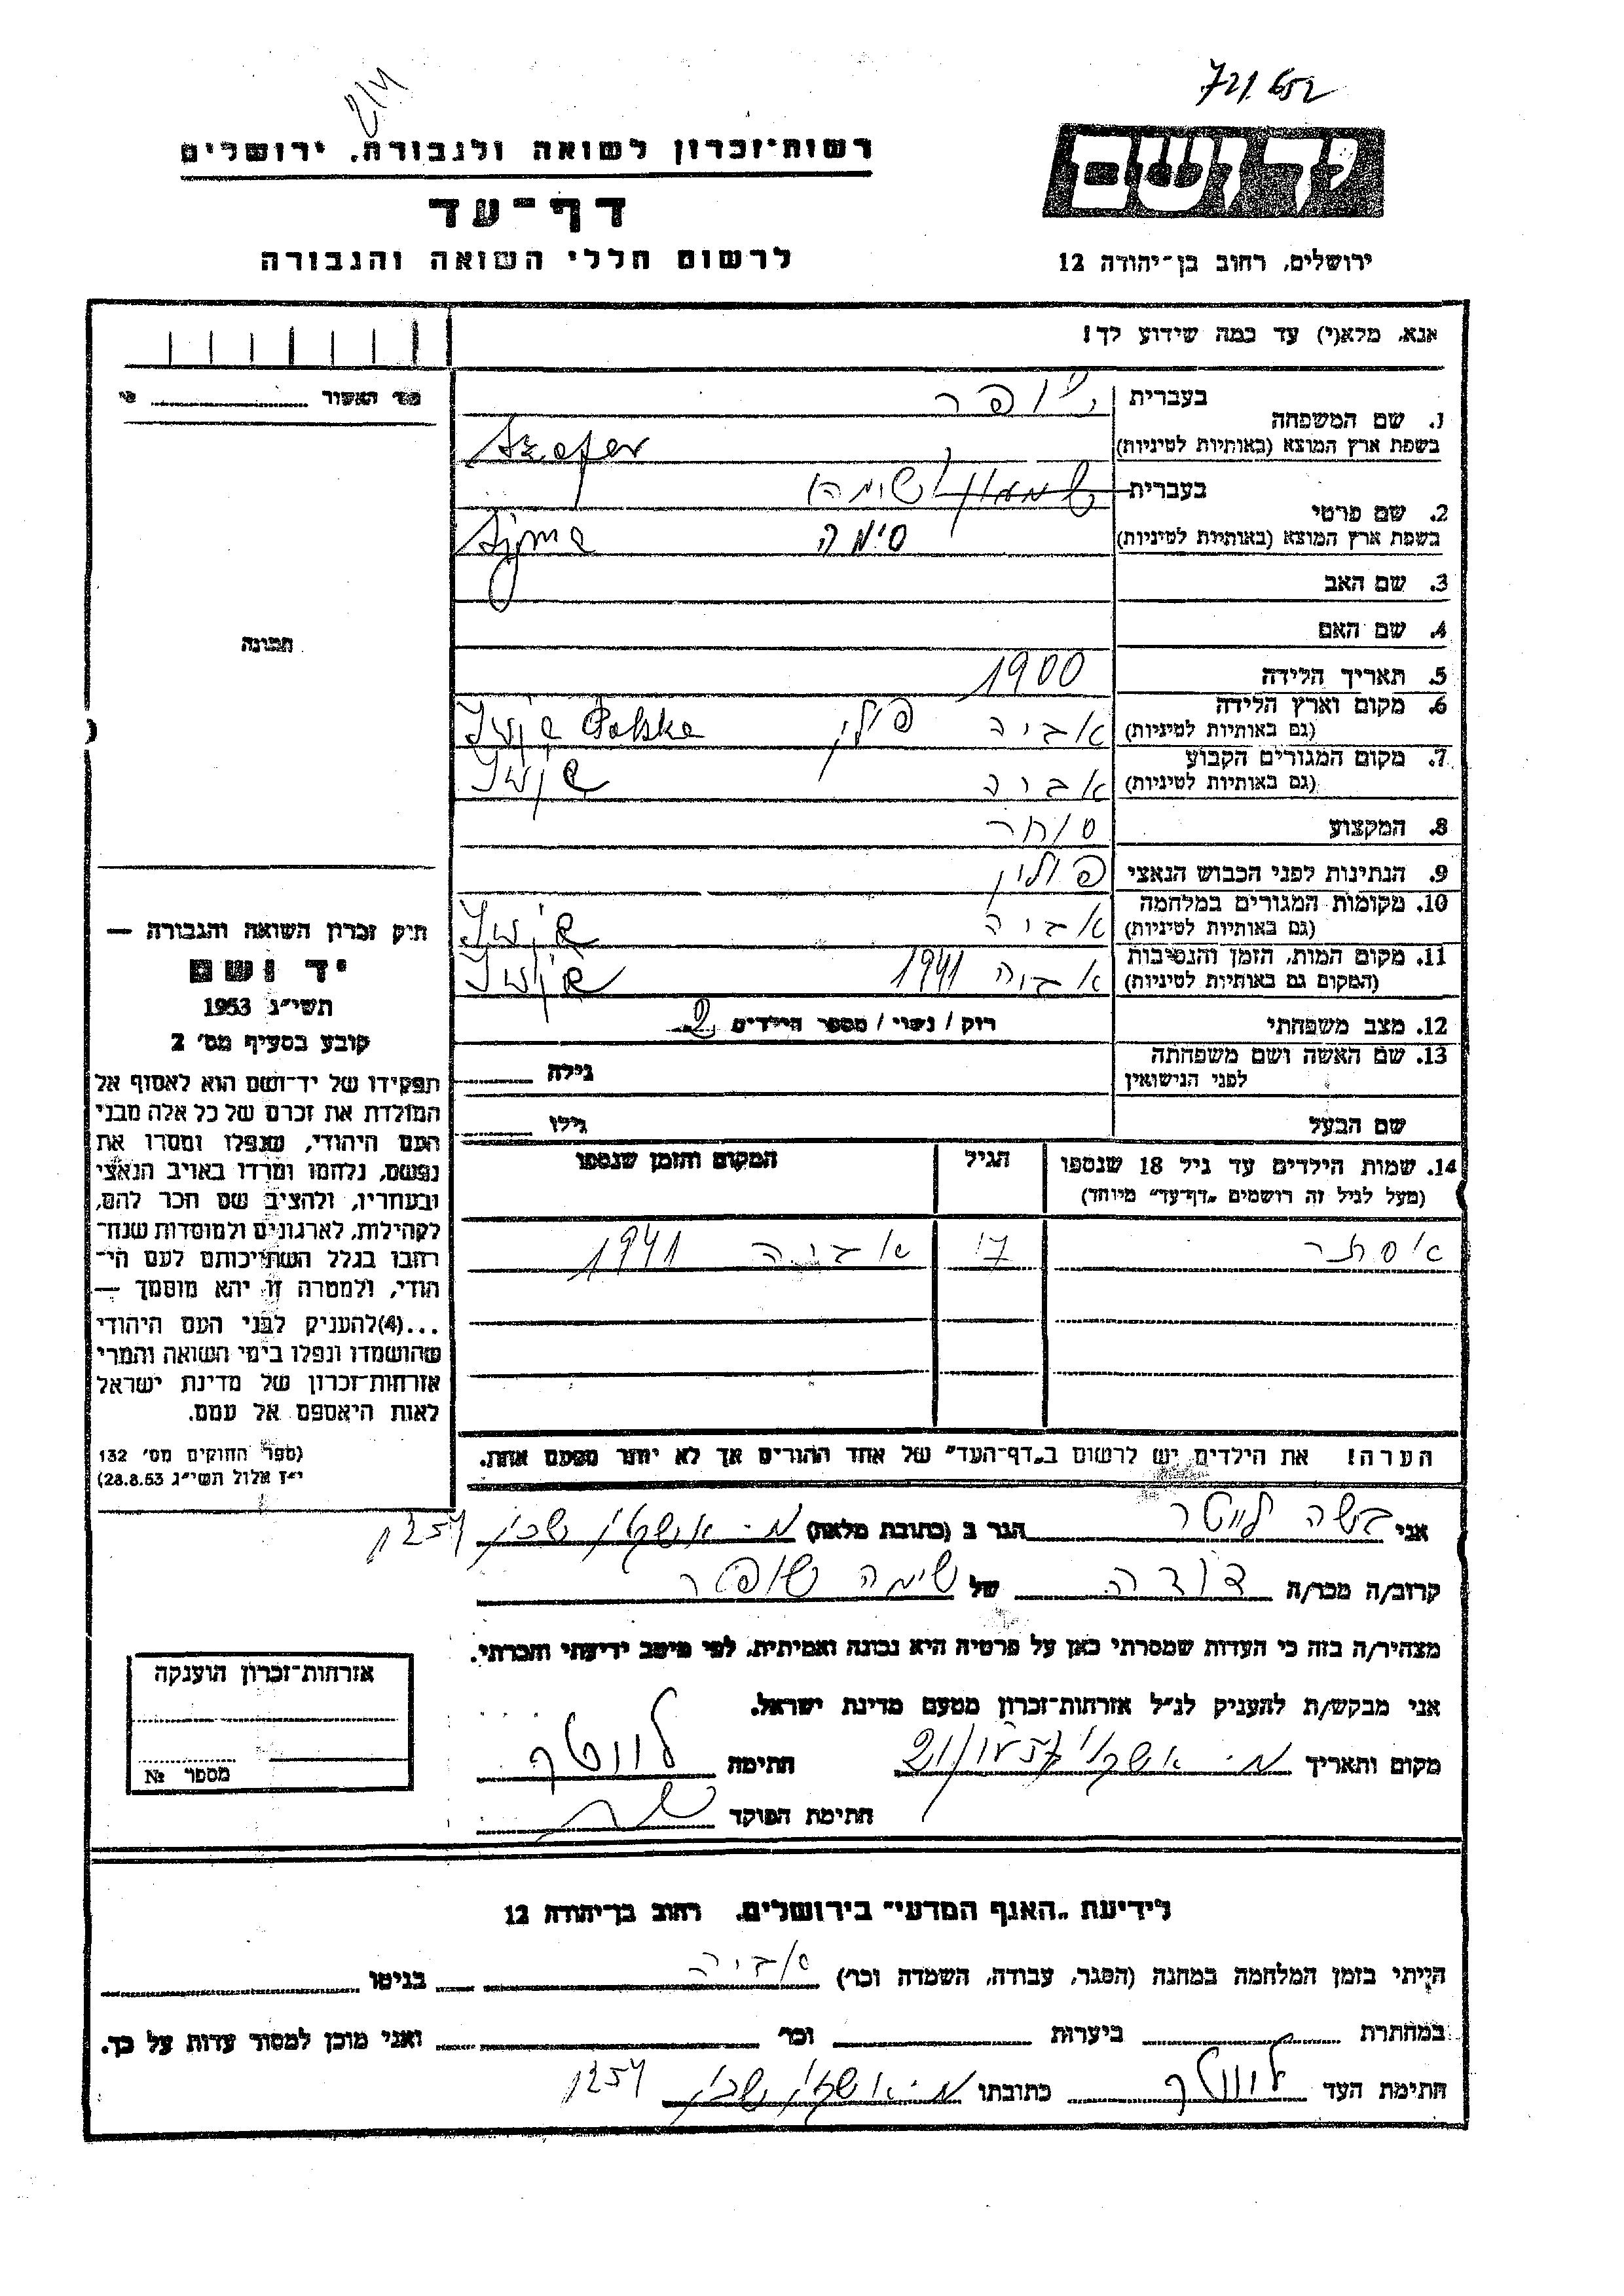 721.652
רשות-זכרון לשואה ולגבורה, ירושלים
דף-עד
לרשום חללי השואה והגבורה
יד ושם
ירושלים, רחוב בן-יהודה 12
אנא, מלא(י) עד כמה שידוע לך!
מס' האשור
1. שם המשפחה
בעברית שופר
בשפת ארץ המוצא (באותיות לטיניות) Szofer
2. שם פרטי
בעברית שמעון שימה
בשפת ארץ המוצא (באותיות לטיניות) סימה Szyma
3. שם האב
4. שם האם
תמונה
5. תאריך הלידה 1900
6. מקום וארץ הלידה
(גם באותיות לטיניות) אביה פולין Iwja Polska
7. מקום המגורים הקבוע
(גם באותיות לטיניות) אביה Iwja
8. המקצוע סוחר
9. הנתינות לפני הכבוש הנאצי פולין
10. מקומות המגורים במלחמה
(גם באותיות לטיניות) אביה Iwja
11. מקום המות, הזמן והנסיבות
(המקום גם באותיות לטיניות) אביה 1941 Iwja
12. מצב משפחתי רווק / נשוי / מספר הילדים 2
13. שם האשה ושם משפחתה
לפני הנישואין גילה
שם הבעל גילו
14. שמות הילדים עד גיל 18 שנספו הגיל המקום והזמן שנספו
(מעל לגיל זה רושמים "דף-עד" מיוחד)
אסתר 17 אביה 1941
הערה! את הילדים יש לרשום ב"דף-העד" של אחד ההורים אך לא יותר מפעם אחת.
חוק זכרון השואה והגבורה —
יד ושם
תשי"ג 1953
קובע בסעיף מס' 2
תפקידו של יד-ושם הוא לאסוף אל
המולדת את זכרם של כל אלה מבני
העם היהודי, שנפלו ומסרו את
נפשם, נלחמו ומרדו באויב הנאצי
ובעוזריו, ולהציב שם וזכר להם,
לקהילות, לארגונים ולמוסדות שנח־
רבו בגלל השתייכותם לעם הי־
הודי, ולמטרה זו יהא מוסמך —
...(4)להעניק לבני העם היהודי
שהושמדו ונפלו בימי השואה והמרי
אזרחות-זכרון של מדינת ישראל
לאות היאספם אל עמם.
(ספר החוקים מס' 132
י"ז אלול תשי"ג 28.8.53)
אני בשה לויטר הגר ב (כתובת מלאה)
קרוב/ה מכר/ה דודה של שימה שופר
מצהיר/ה בזה כי העדות שמסרתי כאן על פרטיה היא נכונה ואמיתית, לפי מיטב ידיעתי והכרתי.
אני מבקש/ת להעניק לנ"ל אזרחות-זכרון מטעם מדינת ישראל.
מקום ותאריך חתימה
חתימת הפוקד
אזרחות-זכרון הוענקה
מספר №
לידיעת "האגף המדעי" בירושלים, רחוב בן-יהודה 12
הייתי בזמן המלחמה במחנה (הסגר, עבודה, השמדה וכר') אביה בגיטו
במחתרת ביערות וכר' ואני מוכן למסור עדות על כך.
חתימת העד כתובתו